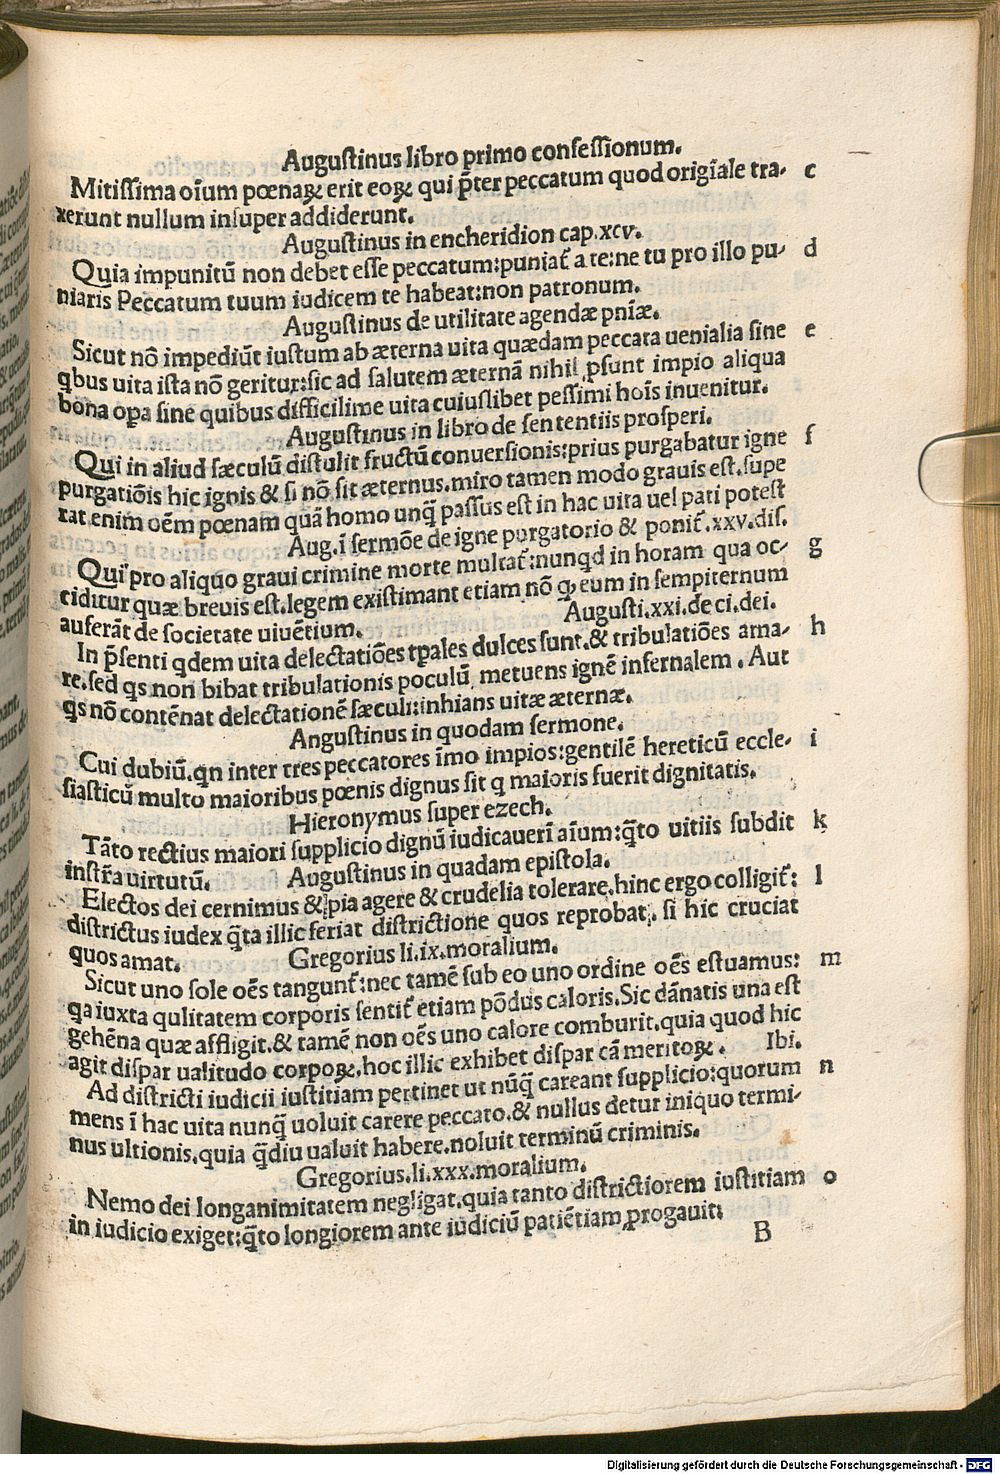 Auguſtinus libro primo confeſſionum.
Mitiſſima oīum pœnaꝝ erit eoꝝ qui p̄ter peccatum quod origīale tra- c
xerunt nullum inſuper addiderunt.
Auguſtinus in encheridion cap.xcv.
Quia impunitū non debet eſſe peccatum:puniat᷑ a te:ne tu pro illo pu- d
niaris Peccatum tuum iudicem te habeat:non patronum.
Auguſtinus de utilitate agendæ pn̄iæ.
Sicut nō impediūt iuſtum ab æterna uita quædam peccata uenialia ſine e
qbus uita iſta nō geritur:ſic ad ſalutem æternā nihil ꝓſunt impio aliqua
bona oꝑa ſine quibus difficilime uita cuiuſlibet peſſimi hoīs inuenitur.
Auguſtinus in libro de ſententiis proſperi.
Qui in aliud ſæculū diſtulit fructū conuerſionis:prius purgabatur igne f
purgatiōis hic ignis & ſi nō ſit æternus.miro tamen modo grauis eſt.ſupe
rat enim oēm pœnam quā homo unq̄ paſſus eſt in hac uita uel pati poteſt
Aug.ī ſermōe de igne purgatorio & ponit᷑.xxv.diſ.
Qui pro aliquo graui crimine morte multat᷑:nunqd in horam qua oc- g
ciditur quæ breuis eſt.legem exiſtimant etiam nō ꝙ eum in ſempiternum
auferāt de ſocietate uiuētium. Auguſti.xxi.de ci.dei.
In p̄ſenti qdem uita delectatiōes tꝑales dulces ſunt.& tribulatiōes ama- h
re.ſed qs non bibat tribulationis poculū metuens ignē infernalem . Aut
qs nō contēnat delectationē ſæculi:inhians uitæ æternæ.
Anguſtinus in quodam ſermone.
Cui dubiū.qn inter tres peccatores īmo impios:gentilē hereticū eccle- i
ſiaſticū multo maioribus pœnis dignus ſit q maioris fuerit dignitatis.
Hieronymus ſuper ezech.
Tāto rectius maiori ſupplicio dignū iudicauerī aīum:q̄to uitiis ſubdit k
inſtr̄a uirtutū. Auguſtinus in quadam epiſtola.
Electos dei cernimus & pia agere & crudelia tolerare.hinc ergo colligit᷑: l
diſtrictus iudex q̄ta illic feriat diſtrictione quos reprobat. ſi hic cruciat
quos amat. Gregorius li.ix.moralium.
Sicut uno ſole oēs tangunt᷑:nec tamē ſub eo uno ordine oēs eſtuamus: m
qa iuxta qulitatem corporis ſentit᷑ etiam pōdus caloris.Sic dānatis una eſt
gehēna quæ affligit.& tamē non oēs uno calore comburit.quia quod hic
agit diſpar ualitudo corpoꝝ.hoc illic exhibet diſpar cā meritoꝝ . Ibi.
Ad diſtricti iudicii iuſtitiam pertinet ut nūq̄ careant ſupplicio:quorum n
mens ī hac uita nunq̄ uoluit carere peccato.& nullus detur iniquo termi-
nus ultionis.quia q̄diu ualuit habere.noluit terminū criminis.
Gregorius.li.xxx.moralium.
Nemo dei longanimitatem negligat.quia tanto diſtrictiorem iuſtitiam o
in iudicio exiget:q̄to longiorem ante iudiciū patiētiam ꝓrogauit:
B
Digitalisierung gefördert durch die Deutsche Forschungsgemeinschaft - DFG